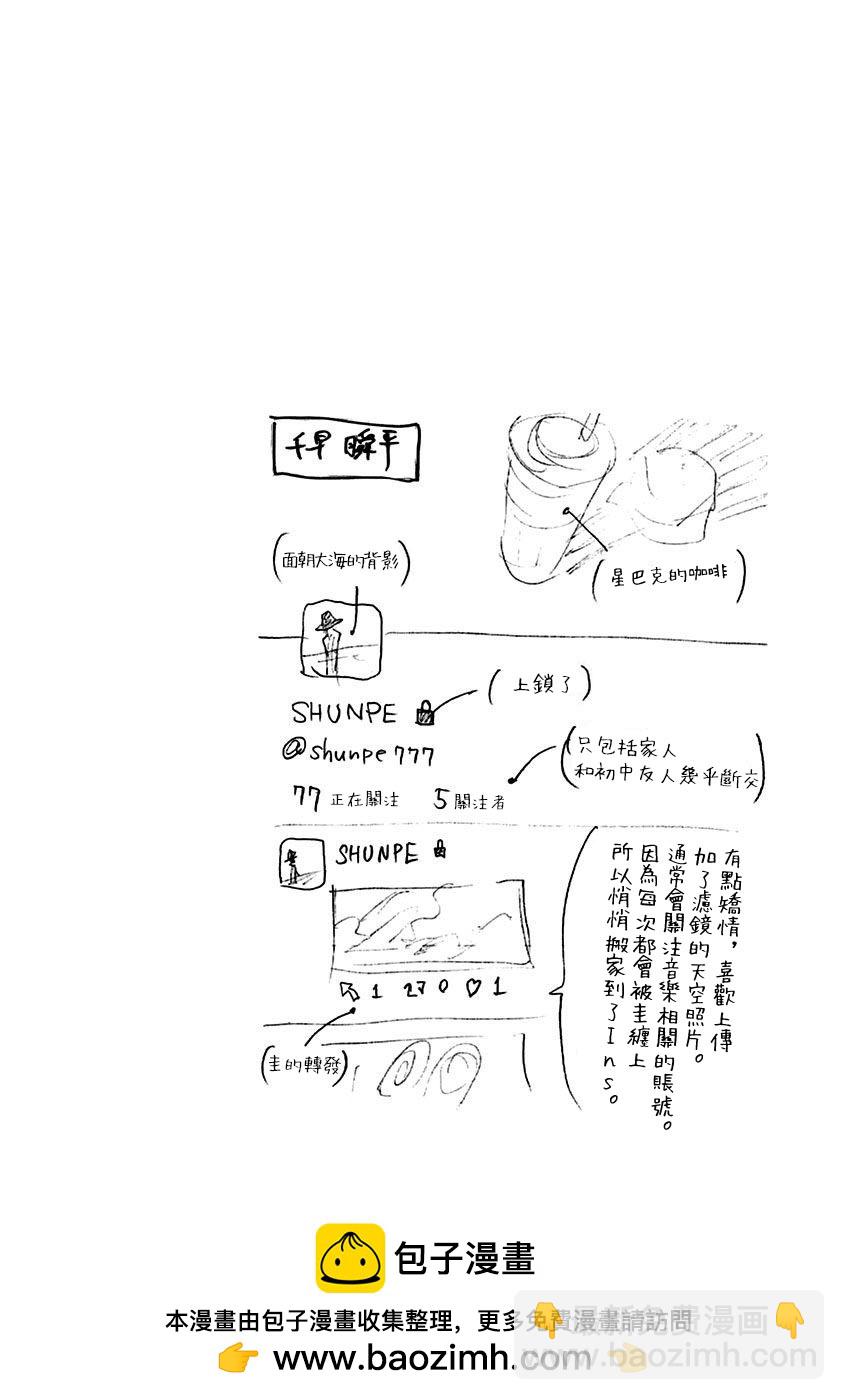 千早 瞬平
(面朝大海的背影)
(星巴克的咖啡)
SHUNPE
(上鎖了)
@shunpe777
77 正在關注 5 關注者
(只包括家人
和初中友人幾乎斷交)
SHUNPE
1 27 0 ♡ 1
(圭的轉發)
有點矯情，喜歡上傳
加了濾鏡的天空照片。
通常會關注音樂相關的賬號。
因為每次都會被圭纏上
所以悄悄搬家到了Ins。
包子漫畫
本漫畫由包子漫畫收集整理，更多免費漫畫請訪問
👉 www.baozimh.com
👇最新免費漫画👇
baozimh.com